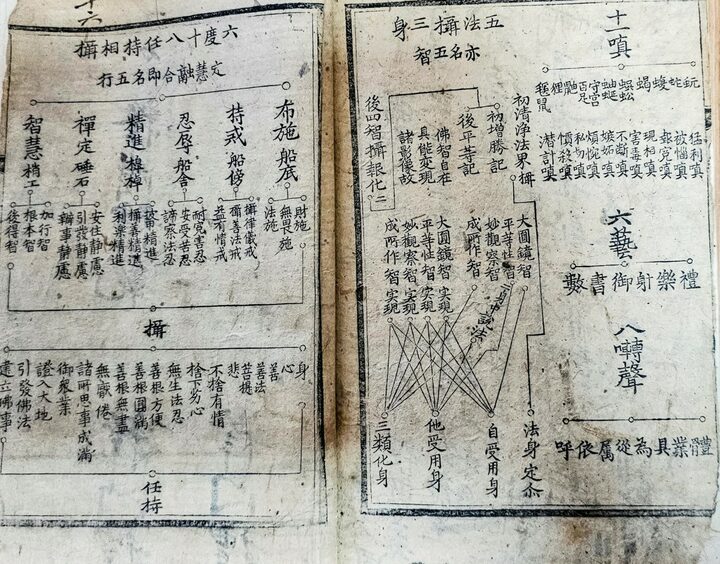 十一嗔
蚖
蛇
蝮
蝎
蜈蚣
蚰蜒
守宮
百足
鼬
狸
鼷鼠
猛利嗔
被惱嗔
報寃嗔
現相嗔
害毒嗔
不斷嗔
嫉妬嗔
煩惋嗔
私勿嗔
憤殺嗔
潛計嗔
六藝
禮樂射御書數
八囀聲
體業具為從属依呼
五法攝三身
亦名五智
初清淨法界攝
初增勝記
後平等記
佛智自在
具能変現
諸影像故
後四智攝報化二
大圓鏡智
平等性智
妙觀察智
成所作智
二身中說法
大圓鏡智實現
平等性智實現
妙觀察智實現
成所作智實現
法身定尒
自受用身
他受用身
三類化身
十六
六度十八任持相攝
定慧融合即名五行
布施船底
持戒船傍
忍辱船舍
精進棹
禪定碇石
智慧梢工
財施
無畏施
法施
攝律儀戒
攝善法戒
益有情戒
耐寃害忍
安受苦忍
諦察法忍
被甲精進
攝善精進
利樂精進
安住静慮
引發静慮
辦事静慮
加行智
根本智
後得智
攝
身
心
善
善法
菩提
悲
不捨有情
捨下劣心
無生法忍
善根方便
善根圓滿
善根無盡
無厭倦
諸所思事成滿
御衆業
證入大地
引發佛法
建立佛事
任持